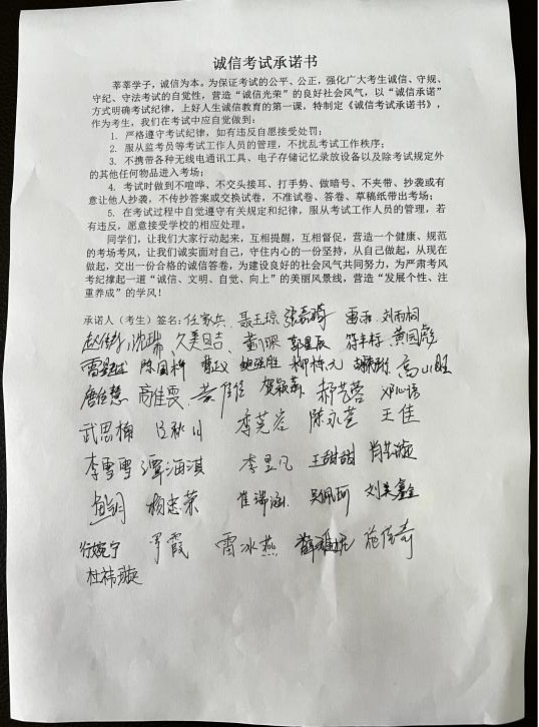 诚信考试承诺书
莘莘学子，诚信为本。为保证考试的公平、公正，强化广大考生诚信、守规、
守纪、守法考试的自觉性，营造“诚信光荣”的良好社会风气，以“诚信承诺”
方式明确考试纪律，上好人生诚信教育的第一课，特制定《诚信考试承诺书》，
作为考生，我们在考试中应自觉做到：
1. 严格遵守考试纪律，如有违反自愿接受处罚；
2. 服从监考员等考试工作人员的管理，不扰乱考试工作秩序；
3. 不携带各种无线电通讯工具、电子存储记忆录放设备以及除考试规定外
的其他任何物品进入考场；
4. 考试时做到不喧哗、不交头接耳、打手势、做暗号、不夹带、抄袭或有
意让他人抄袭，不传抄答案或交换试卷，不准试卷、答卷、草稿纸带出考场；
5. 在考试过程中自觉遵守有关规定和纪律，服从考试工作人员的管理，若
有违反，愿意接受学校的相应处理。
同学们，让我们大家行动起来，互相提醒，互相督促，营造一个健康、规范
的考场考风，让我们诚实面对自己，守住内心的一份坚持，从自己做起，从现在
做起，交出一份合格的诚信答卷，为建设良好的社会风气共同努力，为严肃考风
考纪撑起一道“诚信、文明、自觉、向上”的美丽风景线，营造“发展个性、注
重养成”的学风！
承诺人（考生）签名：任家兵 聂玉琼 雷雨 刘雨桐
沈瑞 黄国彪
陈国科 高小旺
高佳雯 郝艺蓉
武思楠 李芫谷 陈永芝 王佳
李雪雪 谭海淇 李昱凡 王甜甜
杨志荣 吴佩珂
行婉宁 罗霞 雷冰燕 施传奇
杜祎璇